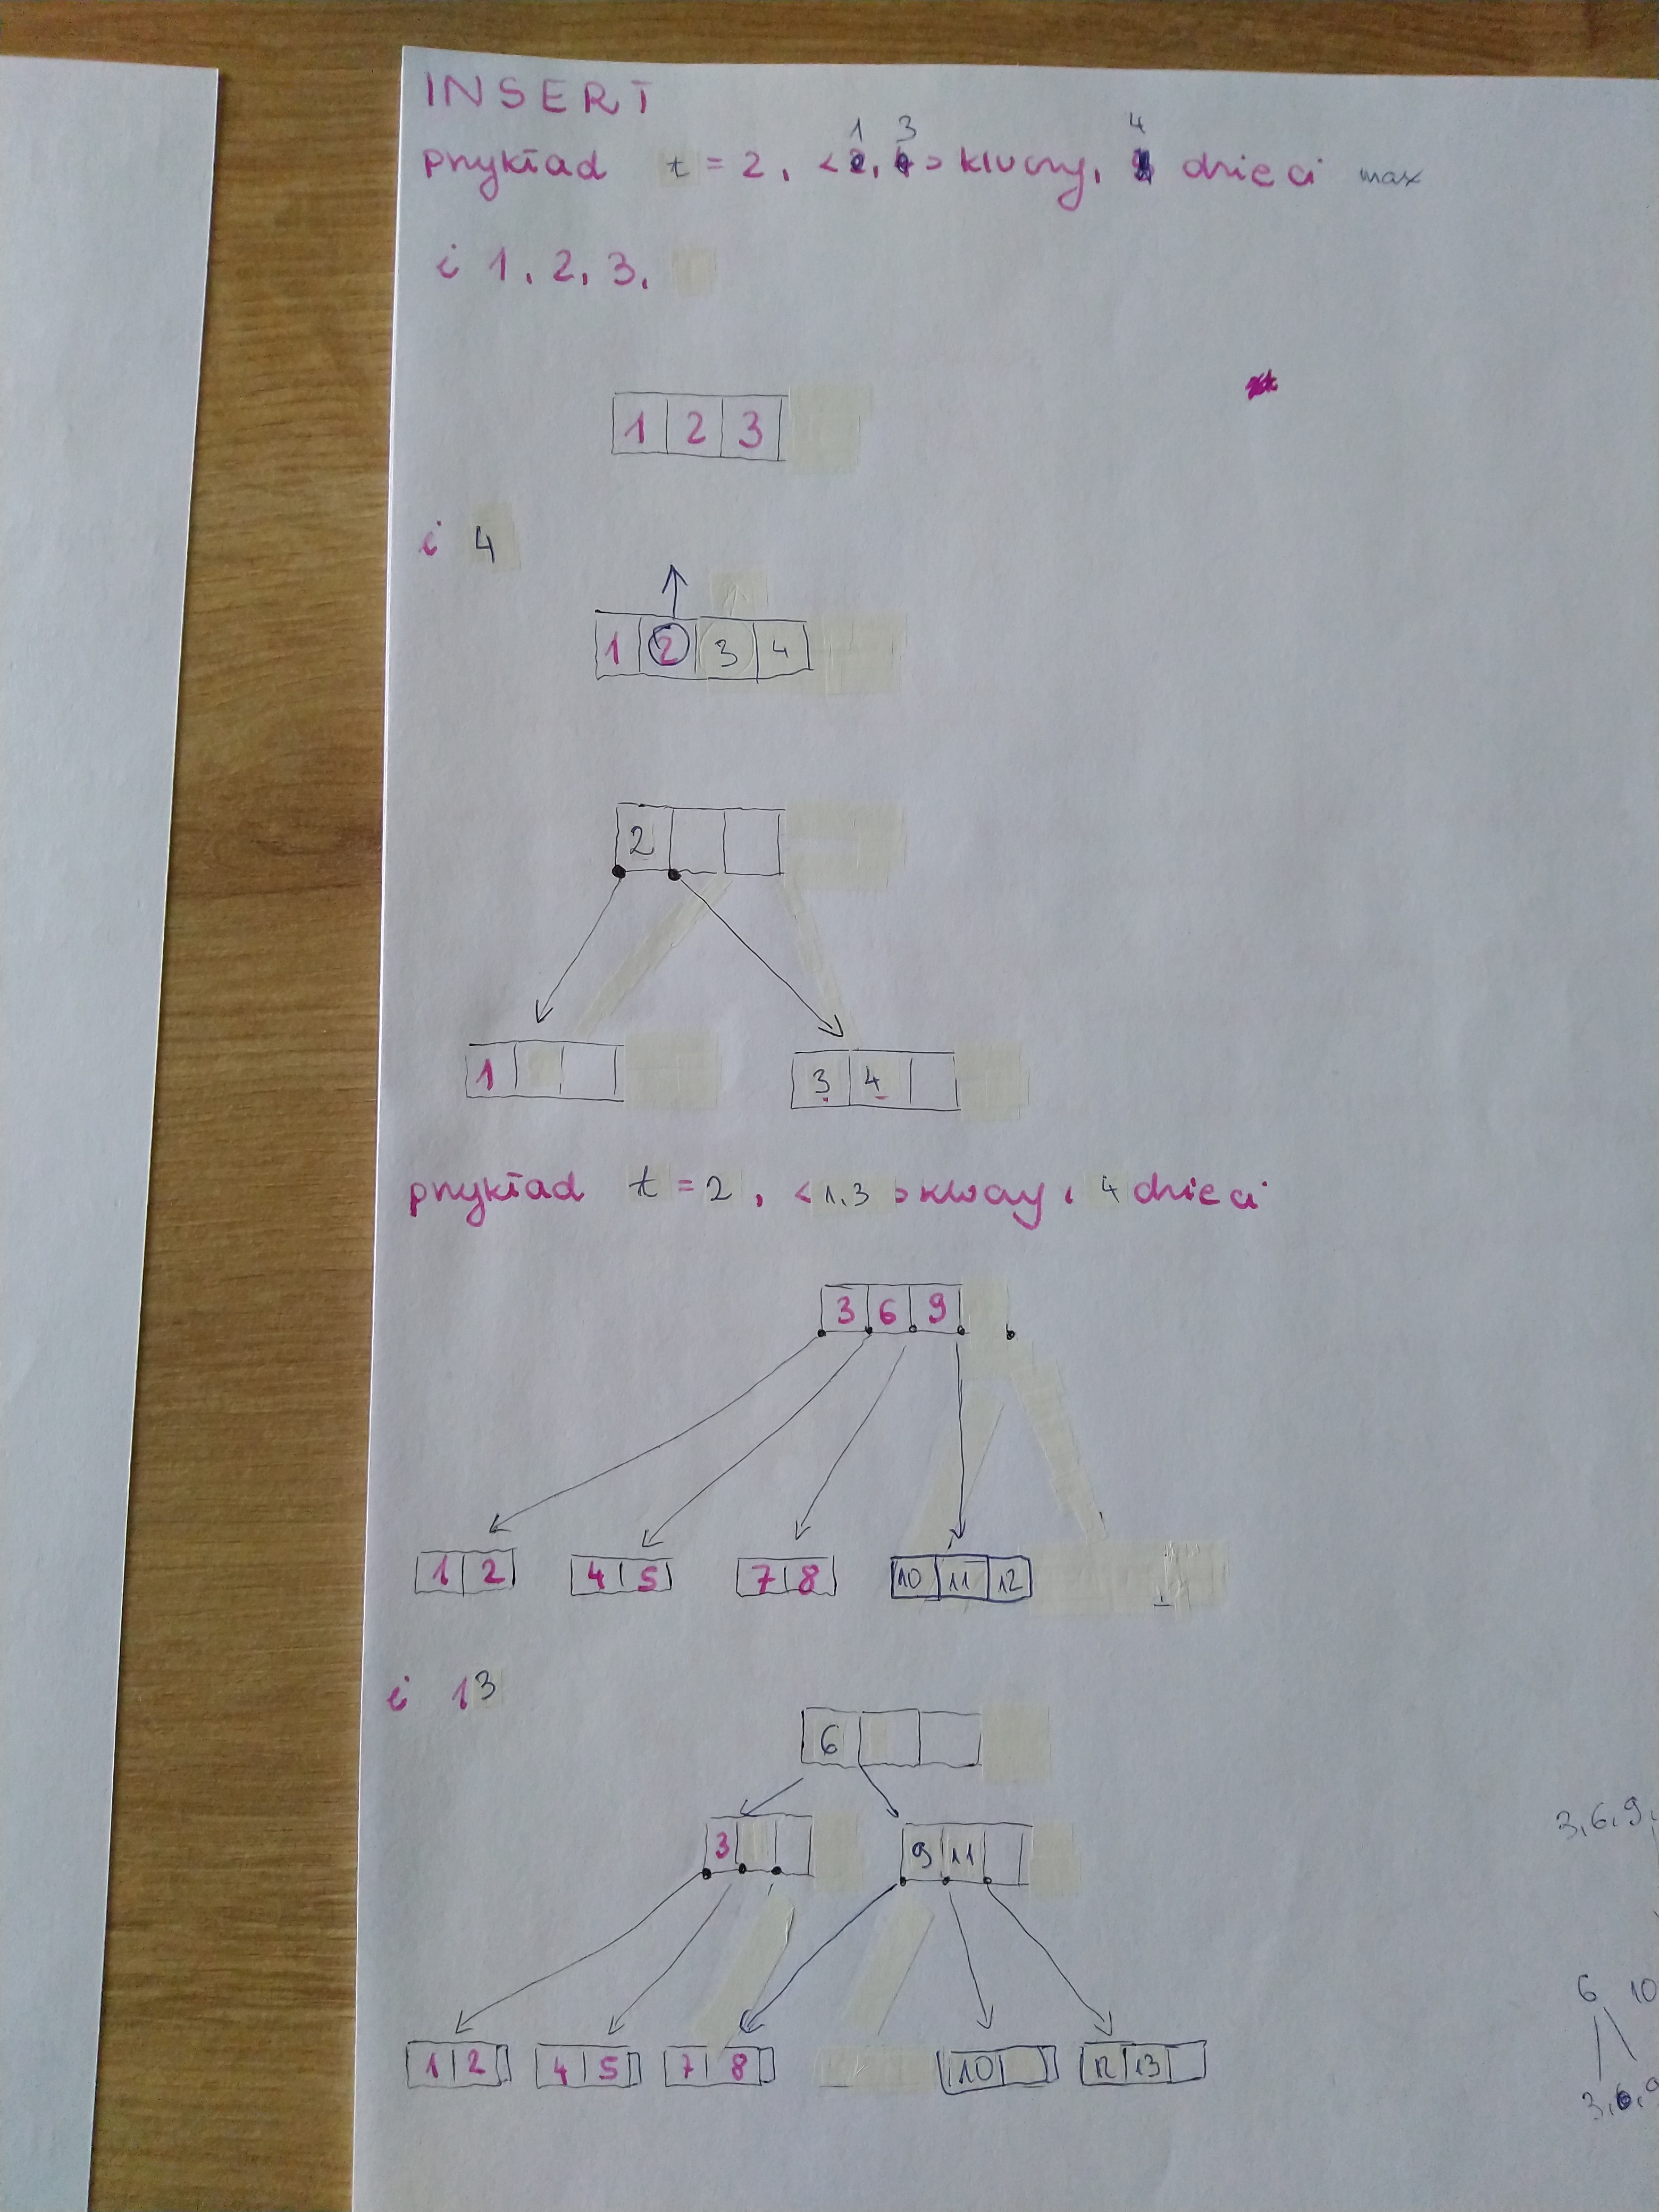 INSERT
1 3 4
przykład t = 2, < , > kluczy, dzieci max
i 1, 2, 3,
1 2 3
i 4
1 2 3 4
2
1
3 4
przykład t = 2, <1,3> kluczy, 4 dzieci
3 6 9
1 2 4 5 7 8 10 11 12
i 13
6
3 9 11
3,6,9,
1 2 4 5 7 8 10 12 13
6 10
3,6,9